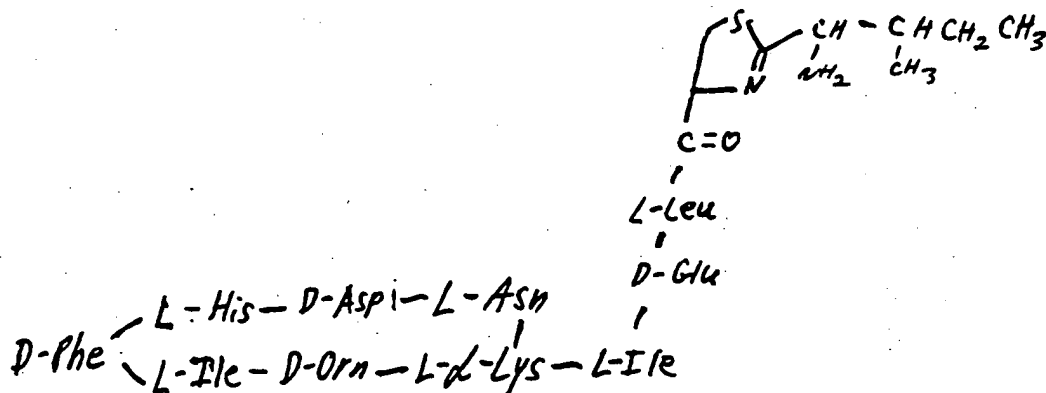 S CH - CH CH2 CH3
N NH2 CH3
C=O
L-Leu
D-Glu
L-His-D-Asp-L-Asn
D-Phe
L-Ile-D-Orn-L-α-Lys-L-Ile